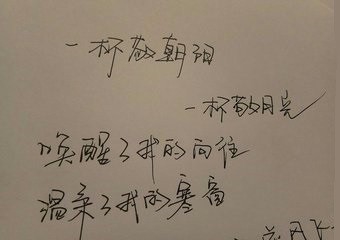 一杯敬朝阳
一杯敬月亮
唤醒了我的向往
温柔了我的寒窗